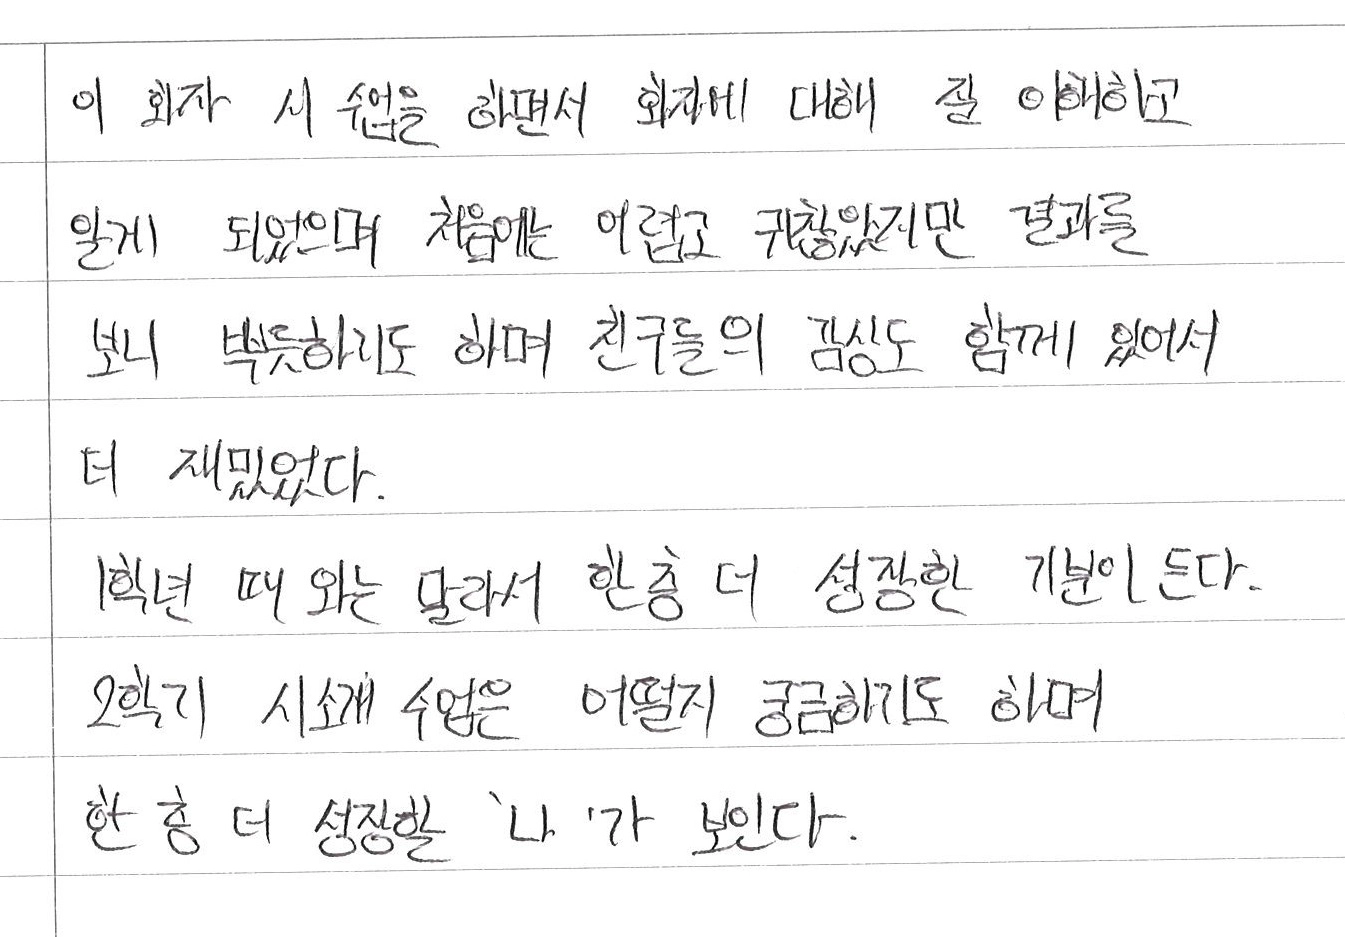 이 화자 시 수업을 하면서 화자에 대해 잘 이해하고
알게 되었으며 처음에는 어렵고 귀찮았지만 결과를
보니 뿌듯하기도 하며 친구들의 감상도 함께 있어서
더 재밌었다.
1학년 때 와는 달라서 한층 더 성장한 기분이 든다.
2학기 시소개 수업은 어떨지 궁금하기도 하며
한 층 더 성장할 '나'가 보인다.